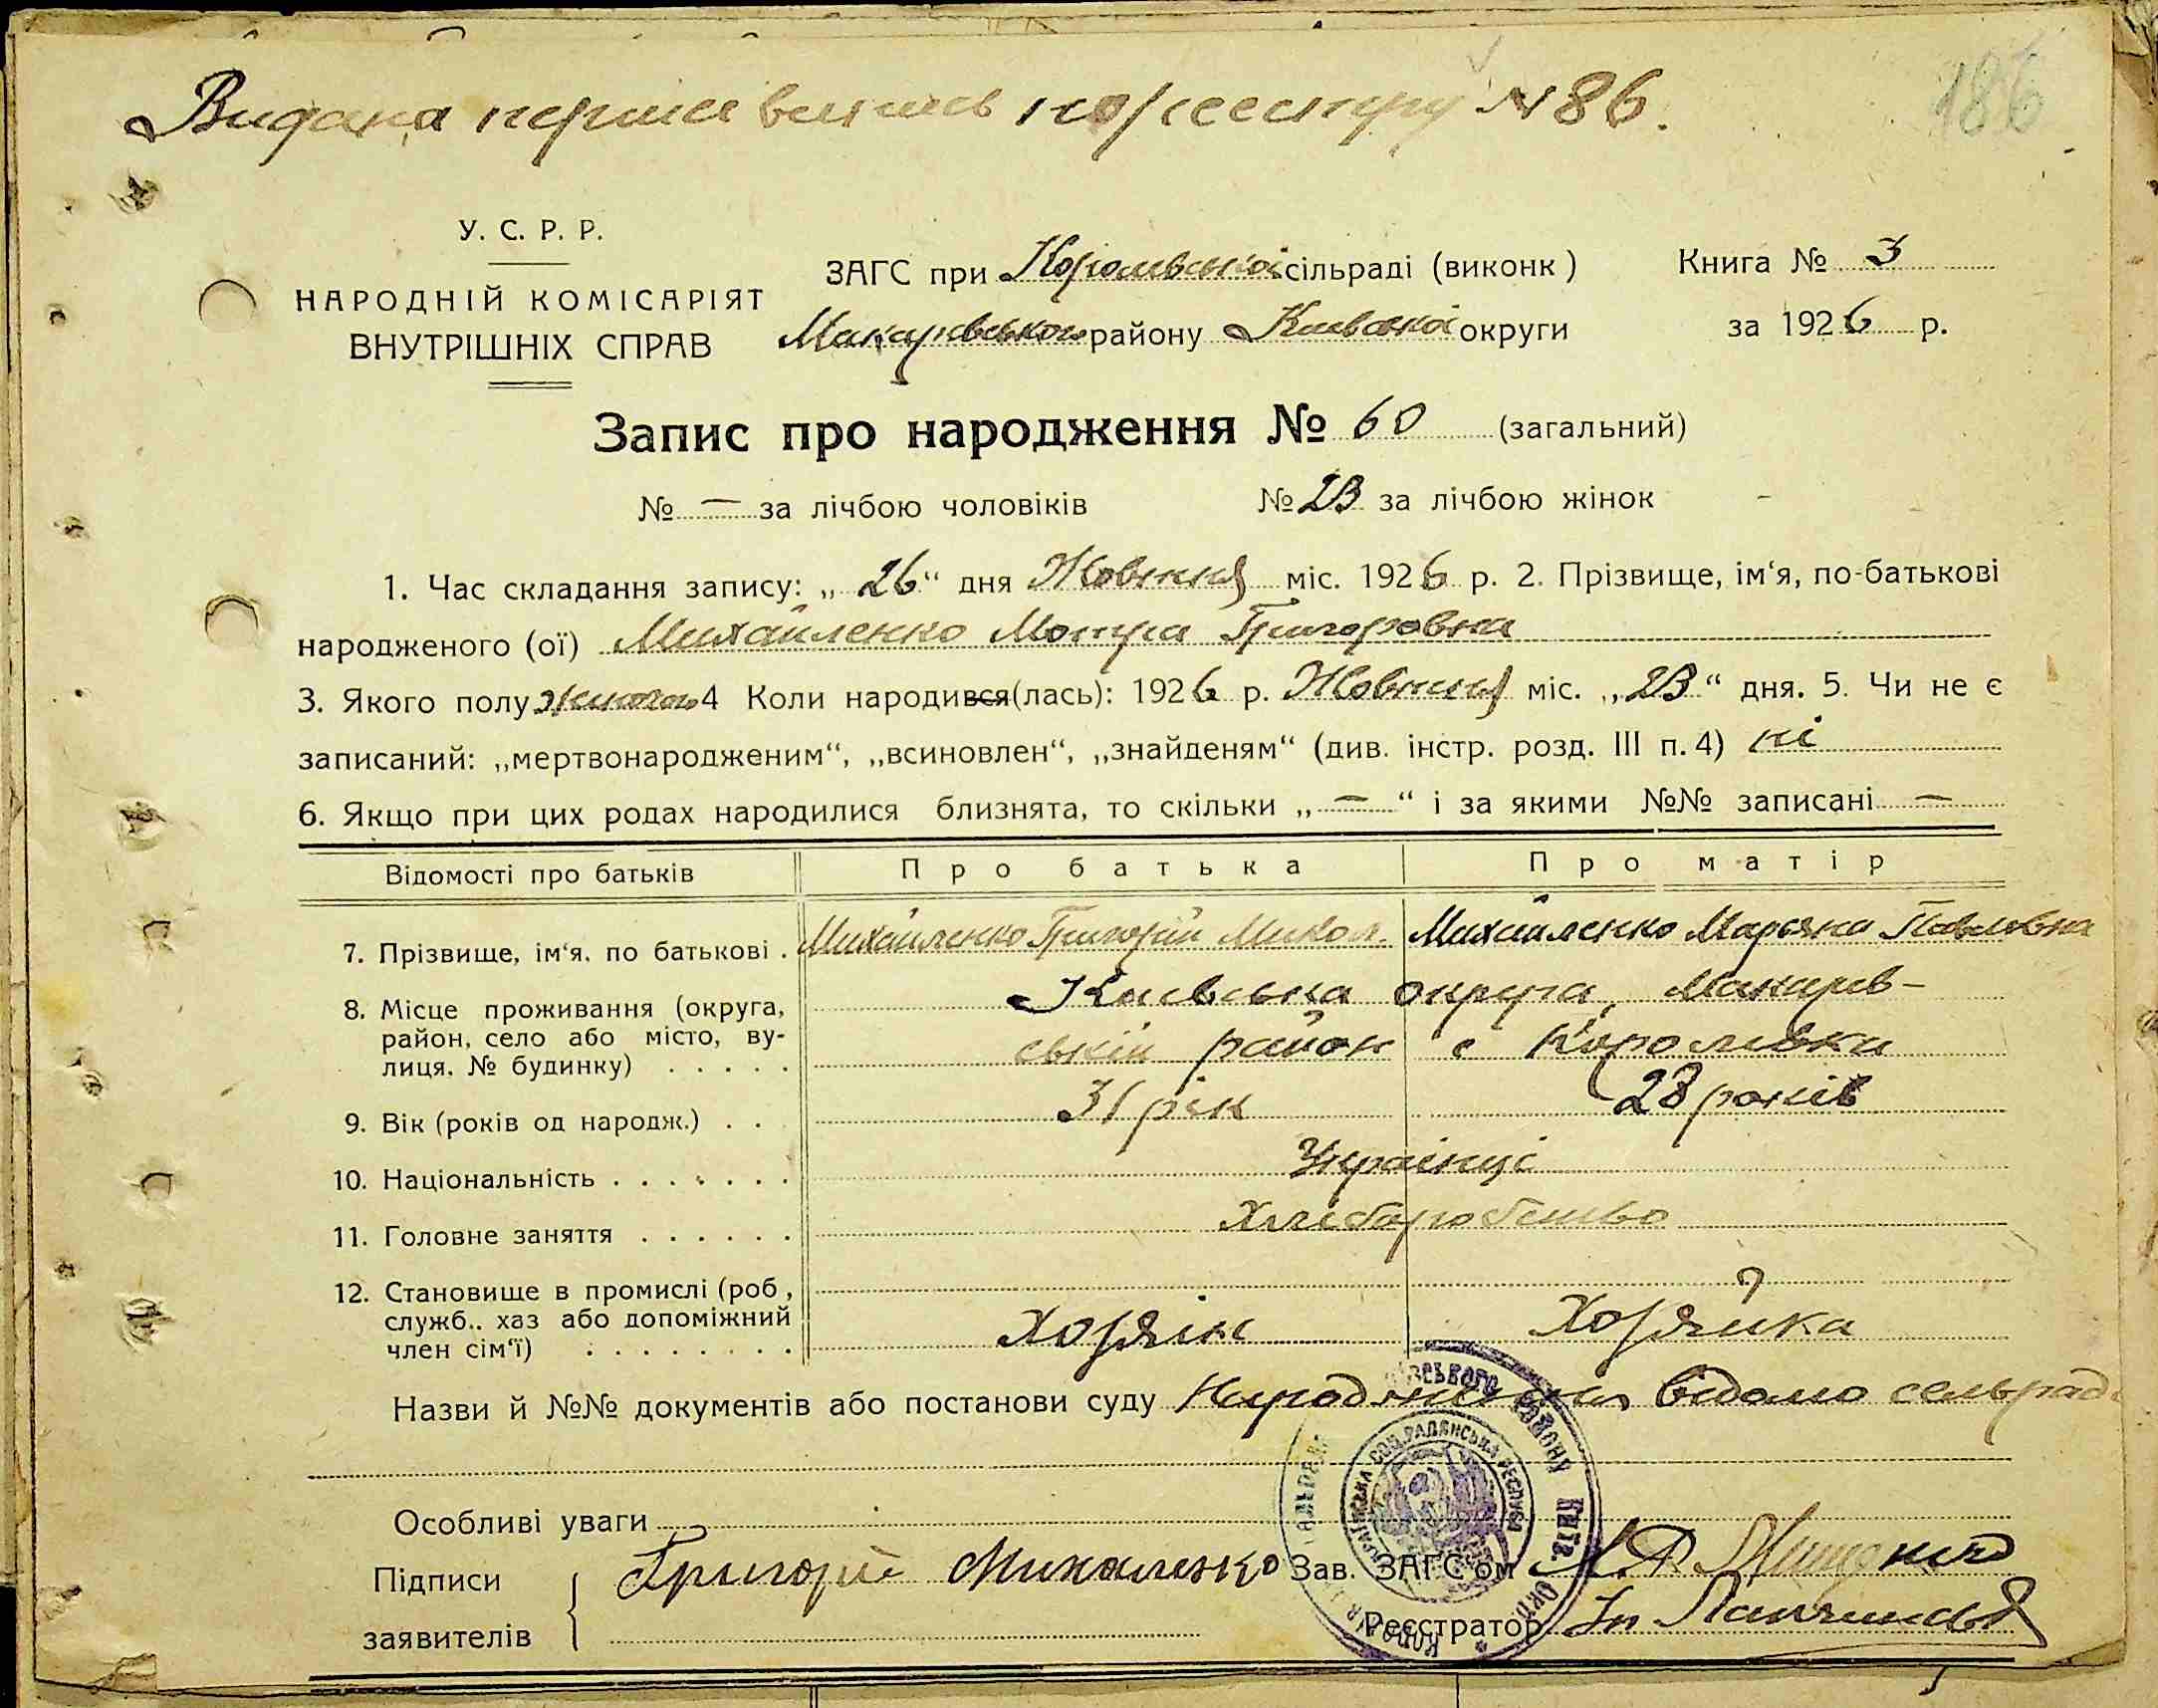 Видана перша випись по реєстру №86.
186
У. С. Р. Р.
НАРОДНІЙ КОМІСАРІЯТ
ВНУТРІШНІХ СПРАВ
ЗАГС при Королівській сільраді (виконк)
Макарівського району Київської округи
Книга № 3
за 1926 р.
Запис про народження № 60 (загальний)
№ — за лічбою чоловіків № 23 за лічбою жінок
1. Час складання запису: „26“ дня Жовтня міс. 1926 р. 2. Прізвище, ім‘я, по-батькові
народженого (ої) Михайленко Мотря Григоровна
3. Якого полу жиночого 4 Коли народився(лась): 1926 р. Жовтня міс. „23“ дня. 5. Чи не є
записаний: „мертвонародженим“, „всиновлен“, „знайденям“ (див. інстр. розд. III п. 4) ні
6. Якщо при цих родах народилися близнята, то скільки „—“ і за якими №№ записані —
Відомості про батьків Про батька Про матір
7. Прізвище, ім‘я, по батькові . Михайленко Григорій Микол. Михайленко Марьяна Павловна
8. Місце проживання (округа, Київська округа, Макарів-
район, село або місто, ву-
лиця, № будинку) . . . . . ській район с Королівка
9. Вік (років од народж.) . . . 31 рік 28 років
10. Національність . . . . . . . Українці
11. Головне заняття . . . . . . Хліборобство
12. Становище в промислі (роб,
служб.. хаз або допоміжний Хозяїн Хозяйка
член сім‘ї) . . . . . . . .
Назви й №№ документів або постанови суду Народження відомо сельраді
Особливі уваги
Підписи Григорій Михаленко Зав. ЗАГС‘ом
заявителів Реєстратор
УКРАЇНСЬКА СОЦ. РАДЯНСЬКА РЕСПУБ
ВСЬКОГО РАЙОНУ КИЇВ. ОКР.